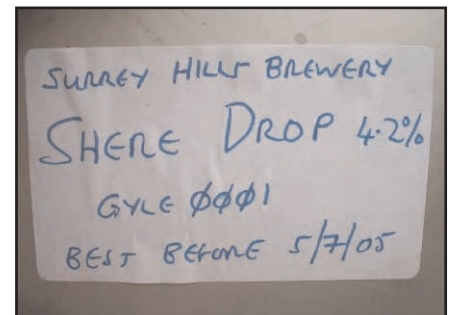 SURREY HILLS BREWERY
SHERE DROP 4.2%
GYLE ØØØ1
BEST BEFORE 5/7/05